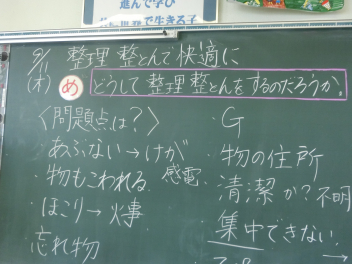 進んで学び
世界で生きる子
9/1 整理 整とんで快適に
(木) め どうして整理整とんをするのだろうか。
〈問題点は?〉
・あぶない→けが
・物もこわれる。感電
・ほこり→火事
忘れ物
・G
・物の住所
・清潔か?不明
・集中できない。